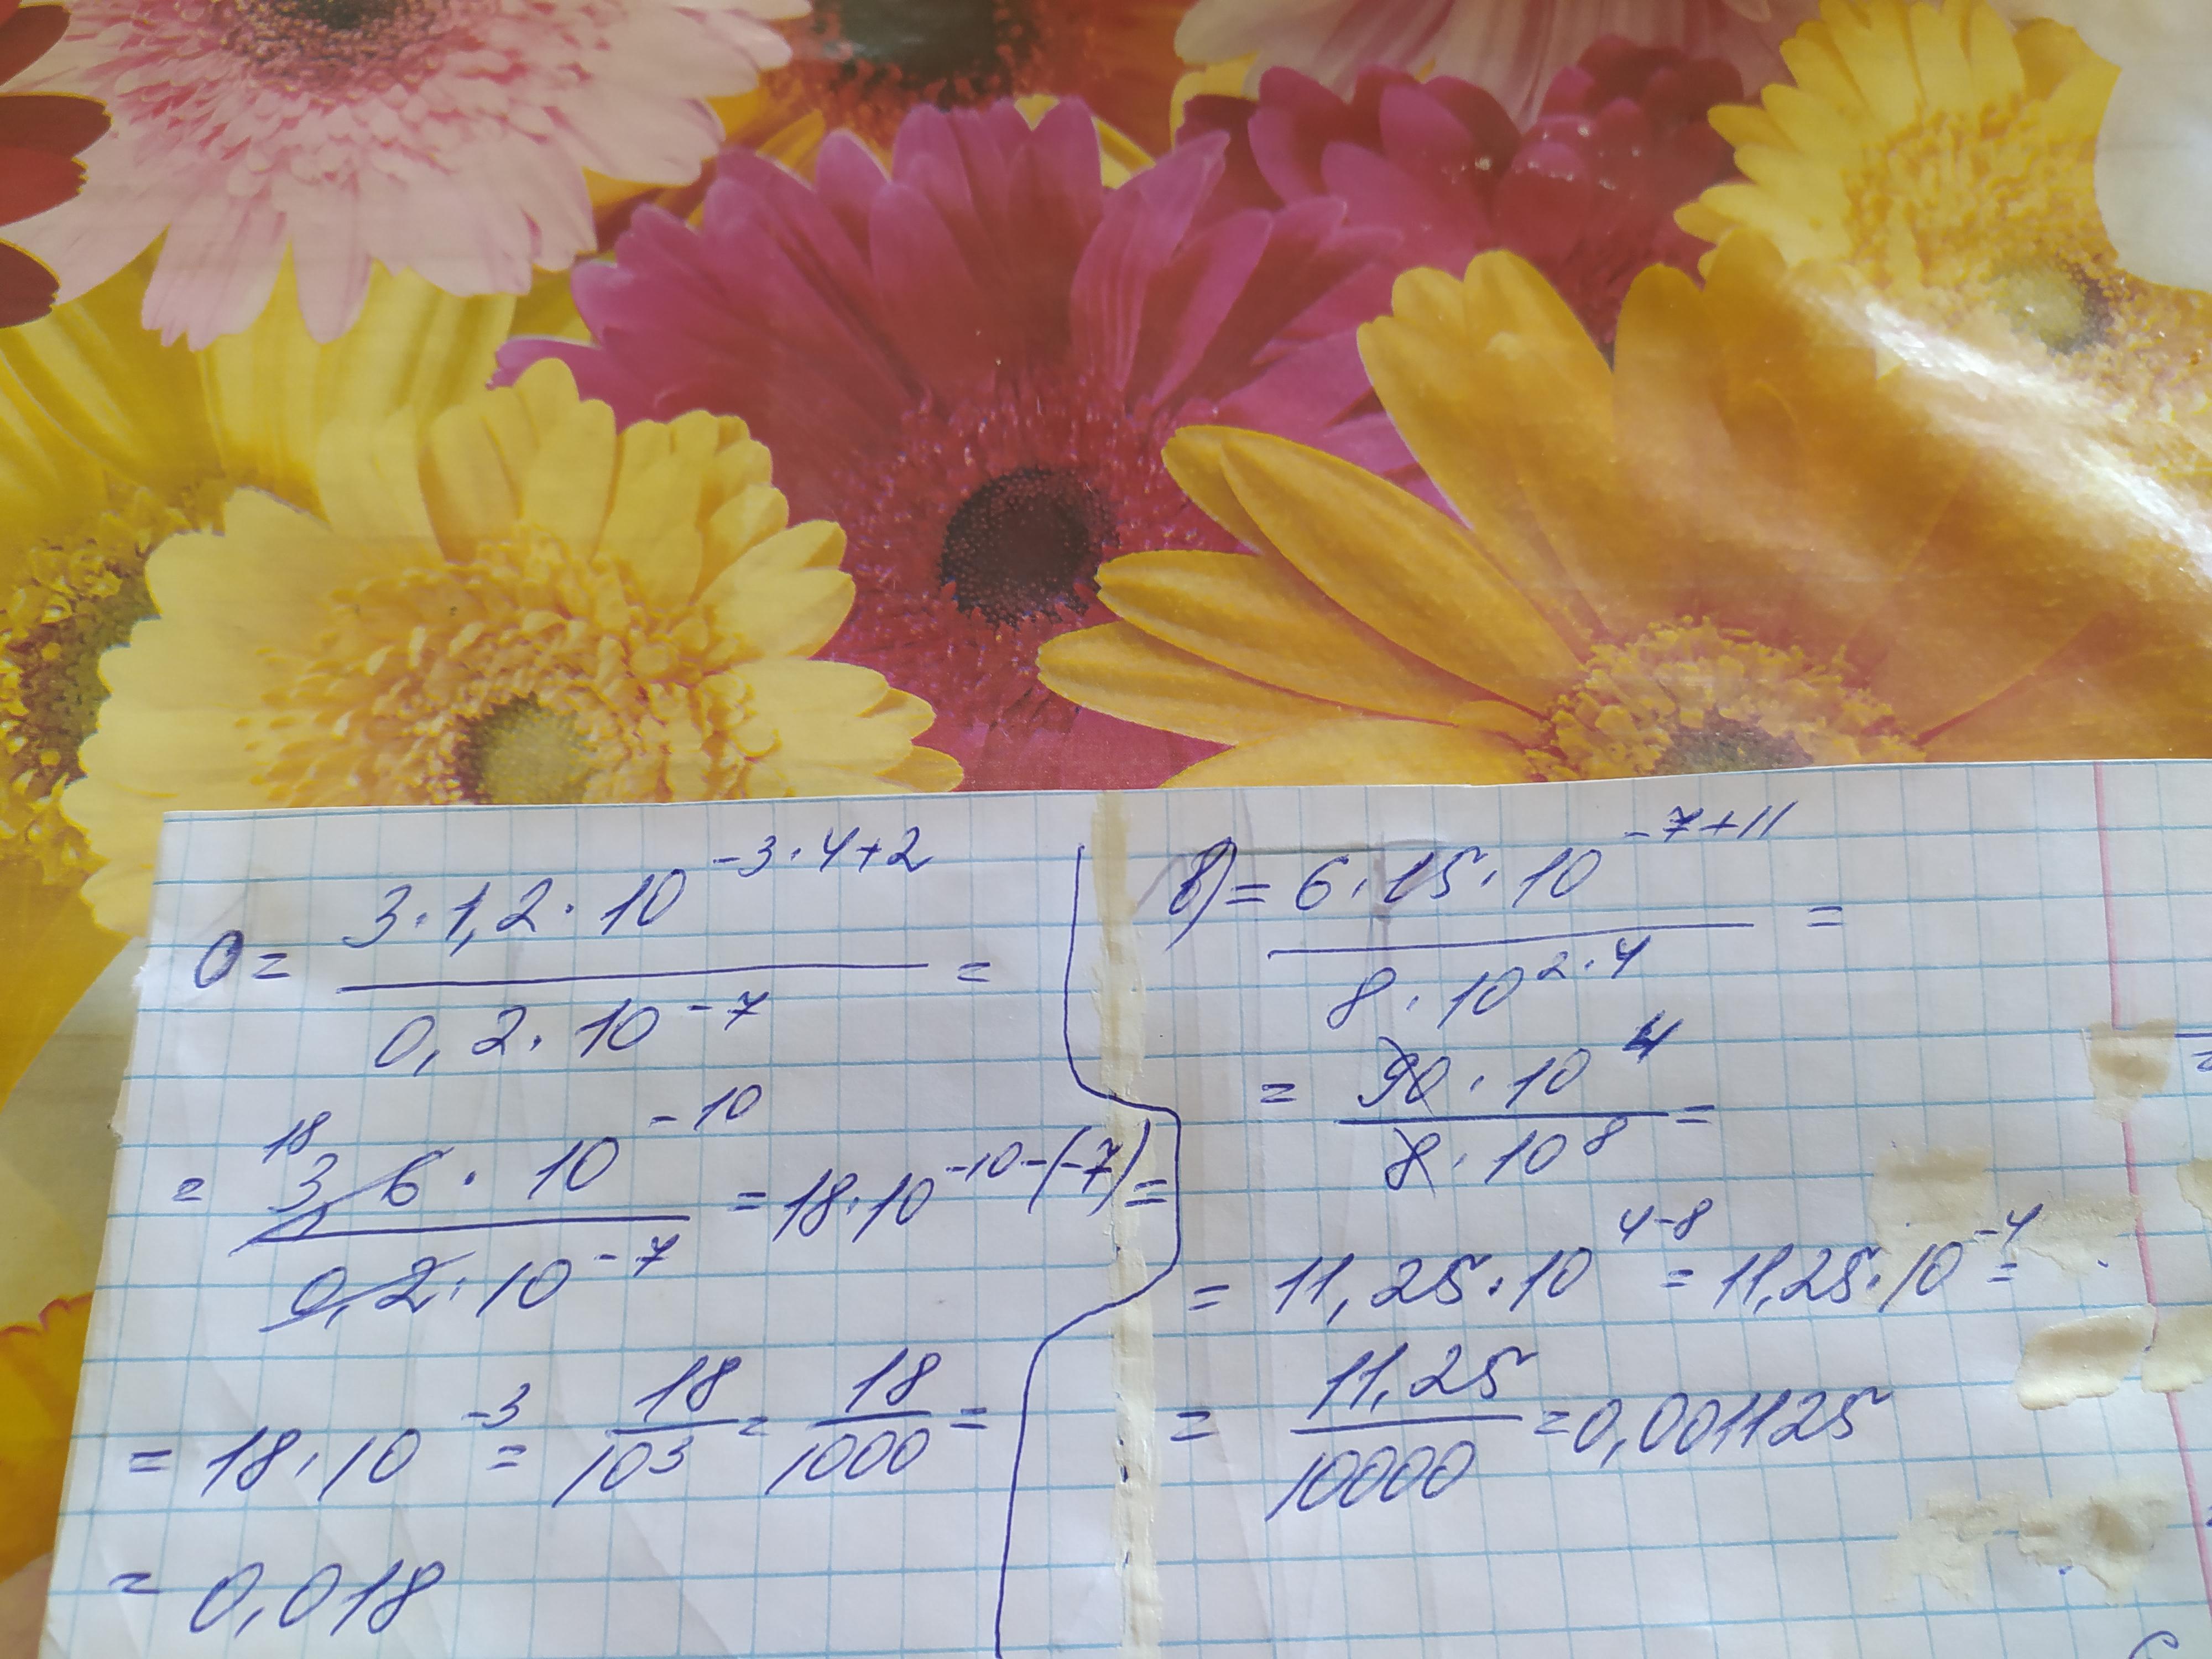 0 = 3·1,2·10^{-3·4+2} / 0,2·10^{-7} =
= 18 3,6·10^{-10} / 0,2·10^{-7} = 18·10^{-10-(-7)} =
= 18·10^{-3} = 18/10^3 = 18/1000 =
= 0,018
в) = 6·15·10^{-7+11} / 8·10^{2·4} =
= 90·10^4 / 8·10^8 =
= 11,25·10^{4-8} = 11,25·10^{-4} =
= 11,25/10000 = 0,001125